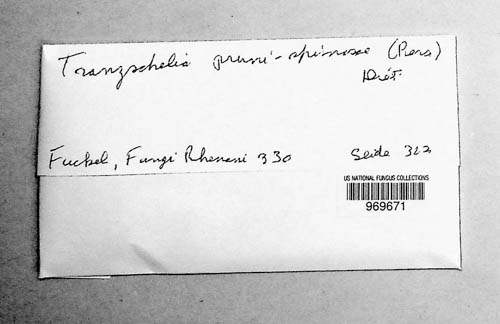 Tranzschelia pruni-spinosae (Pers)
Diet.
Fuckel, Fungi Rhenani 330 Seide 312
US NATIONAL FUNGUS COLLECTIONS
969671